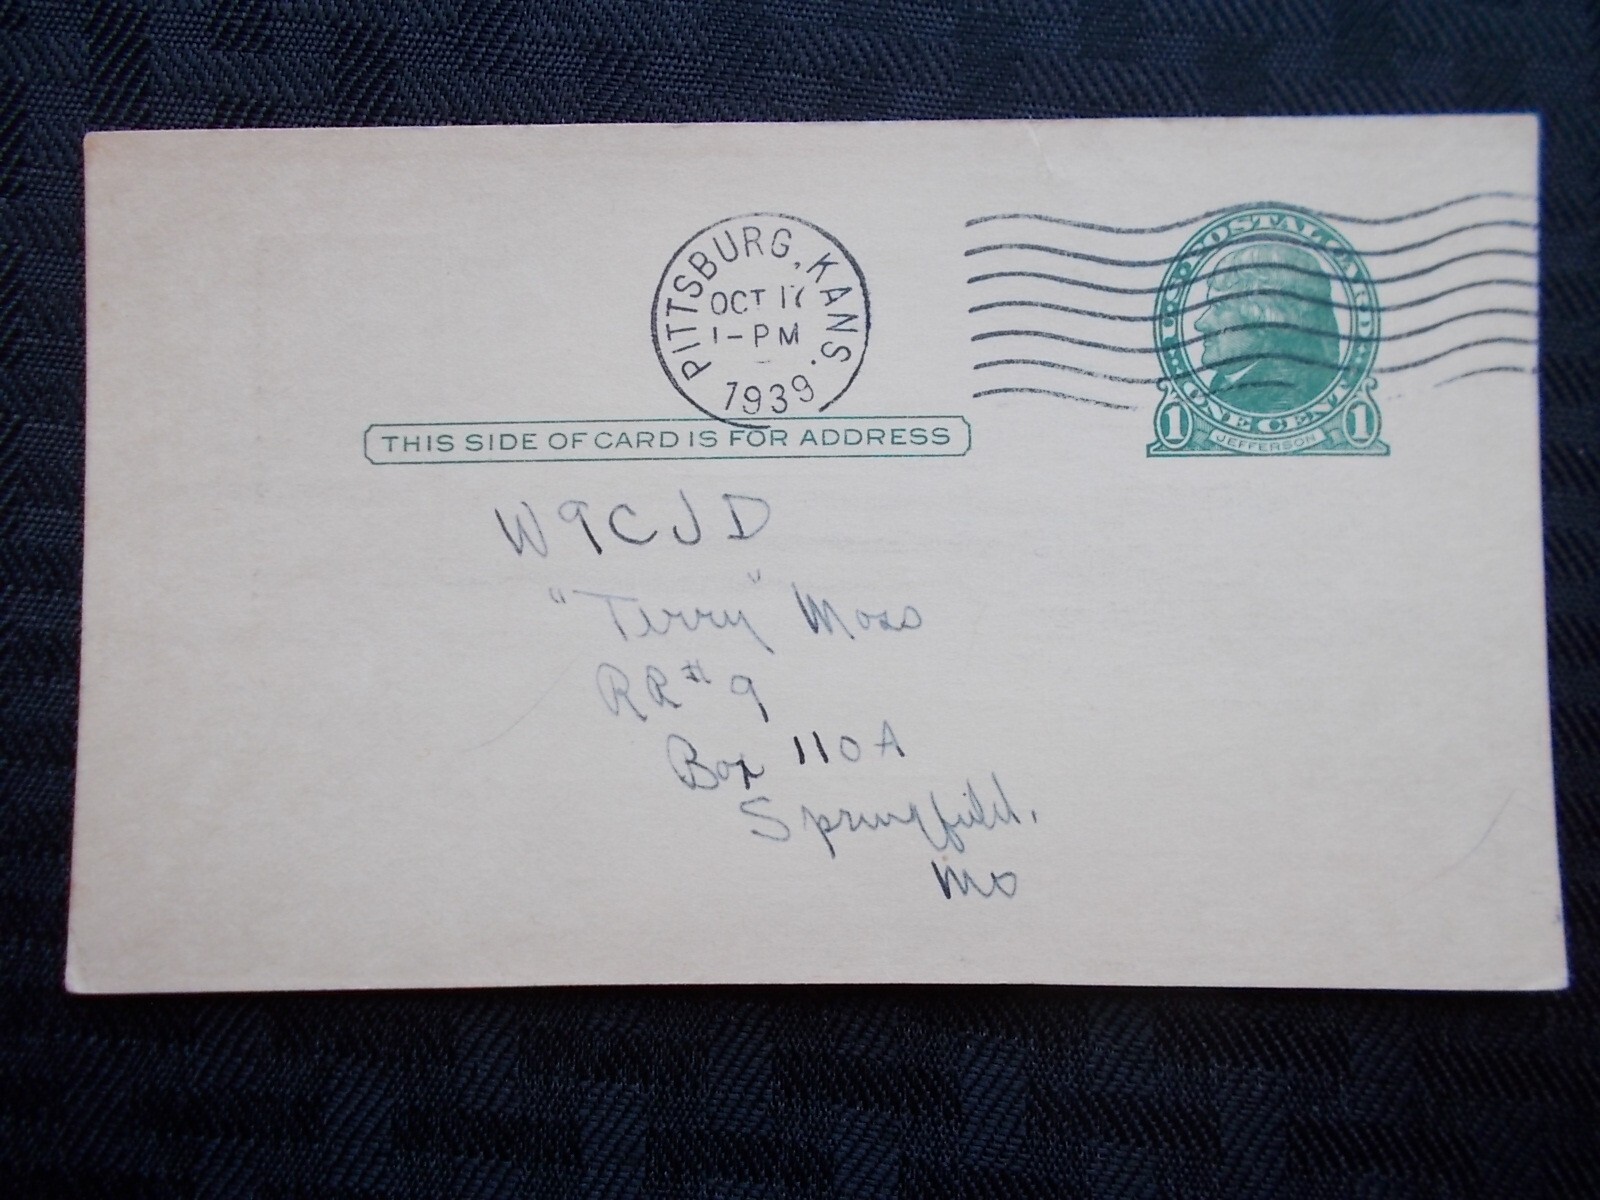 PITTSBURG, KANS.
OCT 17
1-PM
1939
U.S. POSTAL CARD
ONE CENT
1 JEFFERSON 1
THIS SIDE OF CARD IS FOR ADDRESS
W9CJD
"Terry" Moss
RR#9
Box 110A
Springfield,
Mo